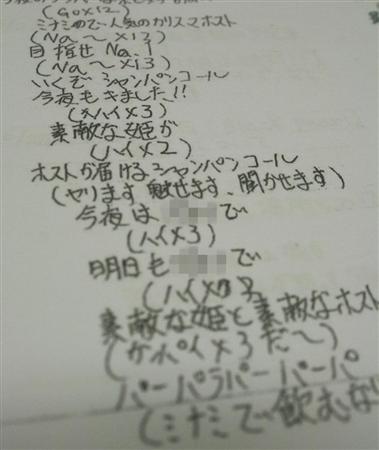 (GO×12)
ミナミので人気のカリスマホスト
(Na〜×13)
目指せ Na.1
(Na〜×13)
いくぞ シャンパンコール
今夜もきました!!
(ハイ×3)
素敵な姫が
(ハイ×2)
ホストが届けるシャンパンコール
(ヤリます 魅せます、聞かせます)
今夜は でい
(ハイ×3)
明日も でい
(ハイ×3
素敵な姫と素敵なホスト
(ケポイ×3だ〜)
パーパラパーパーパ
(ミナミで飲むな